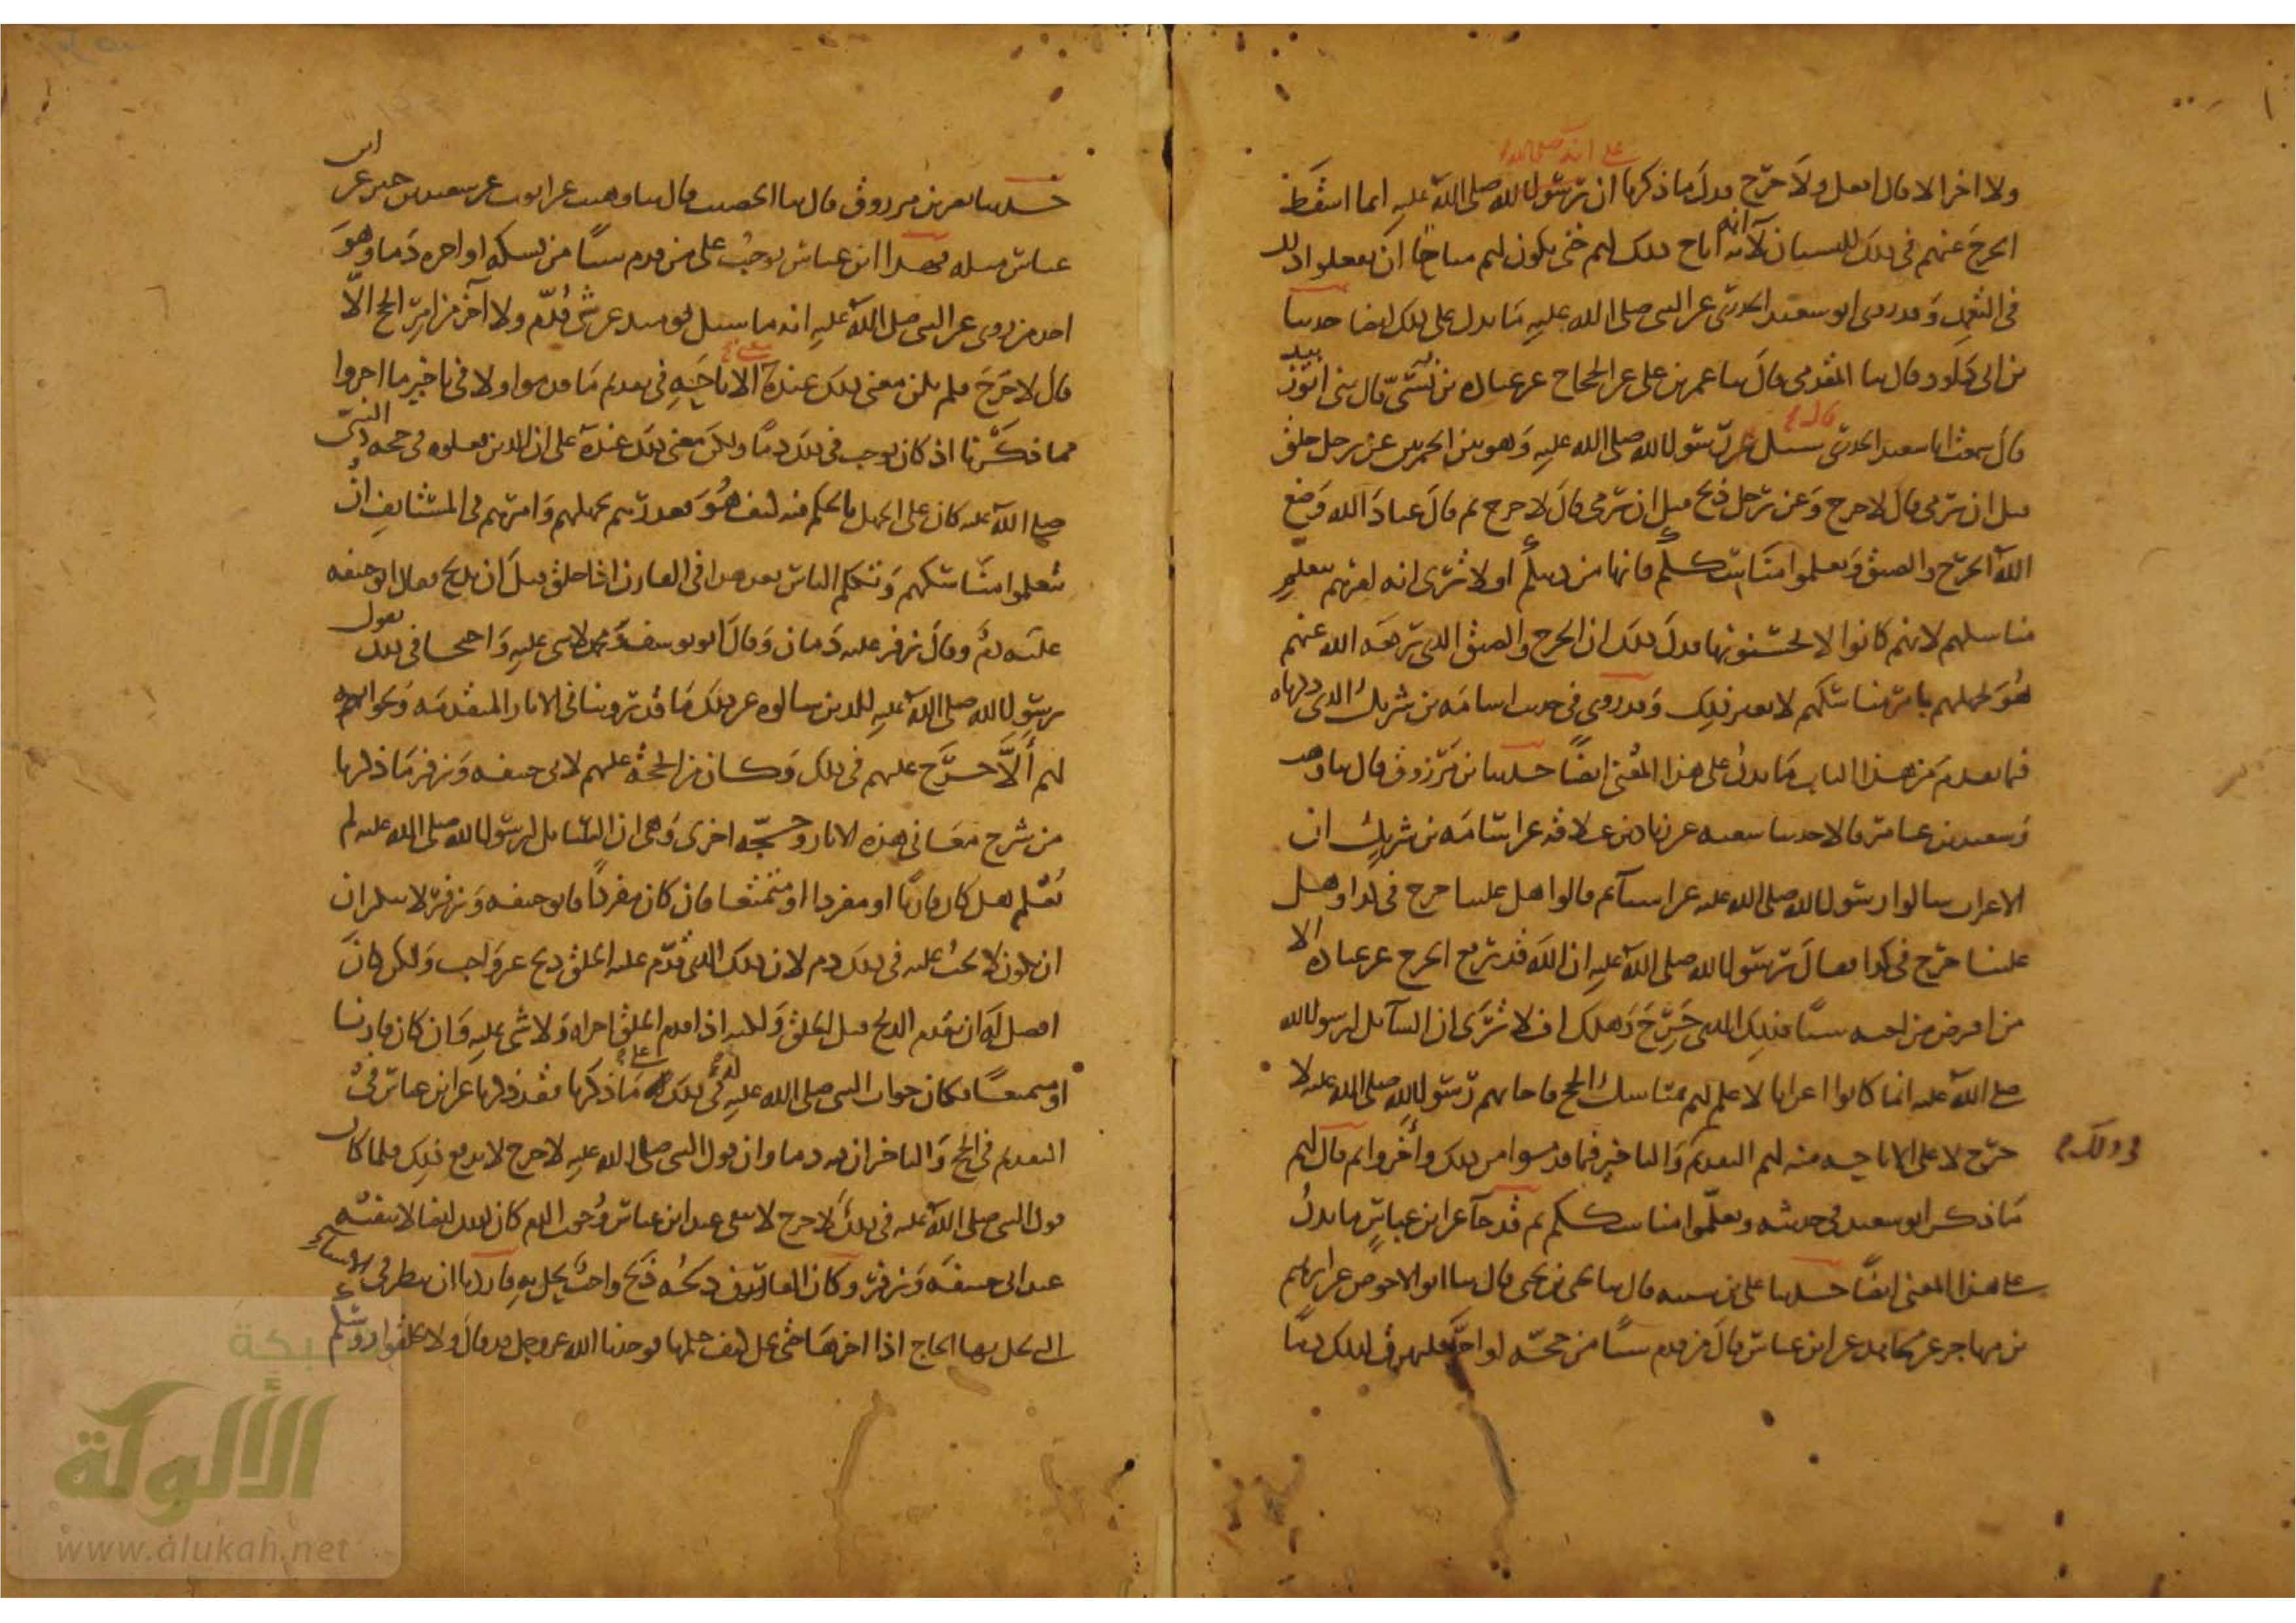 على انه صلى الله
ولا اخر الا قال افعل ولا حرج فدل ما ذكرنا ان رسول الله صلى الله عليه انما اسقط
الحرج عنهم في ذلك للنسيان لا انه اباح ذلك لهم حتى يكون لهم مباحا ان يفعلوا ذلك
في العمد وقد روى ابو سعيد الخدري عن النبي صلى الله عليه ما يدل على ذلك ايضا حدثنا
بن ابي داود قال ثنا المقدمي قال ثنا عمر بن علي عن الحجاج عن عبادة بن نسي قال ثني ابو زبيد
قال سمعت ابا سعيد الخدري قال سئل رسول الله صلى الله عليه وهو بين الجمرتين عن رجل حلق
قبل ان يرمي قال لا حرج وعن رجل ذبح قبل ان يرمي قال لا حرج ثم قال عباد الله وضع
الله الحرج والضيق وتعلموا مناسككم فانها من دينكم اولا ترى انه امرهم بتعليم
مناسكهم لانهم كانوا لا يحسنونها فدل ذلك ان الحرج والضيق الذي رفعه الله عنهم
هو لجهلهم بامر مناسكهم لا لغير ذلك وقد روي في حديث اسامة بن شريك الذي ذكرناه
فيما تقدم من هذا الباب ما يدل على هذا المعنى ايضا حدثنا بن مرزوق قال ثنا وهب
وسعيد بن عامر قالا حدثنا شعبة عن زياد بن علاقة عن اسامة بن شريك ان
الاعراب سالوا رسول الله صلى الله عليه عن اشياء ثم قالوا هل علينا حرج في كذا وهل
علينا حرج في كذا فقال رسول الله صلى الله عليه ان الله قد رفع الحرج عن عباده الا
من اقرض من اخيه شيئا فذلك الذي حرج وهلك افلا ترى ان السائل لرسول الله
صلى الله عليه انما كانوا اعرابا لا علم لهم بمناسك الحج فاجابهم رسول الله صلى الله عليه لا
حرج لا على الاباحة منه لهم التقديم والتاخير فيما قدموا من ذلك وأخروا ثم قال لهم
في ذلك
ما ذكر ابو سعيد في حديثه وتعلموا مناسككم ثم قد جاء عن ابن عباس ما يدل
على هذا المعنى ايضا حدثنا علي بن شيبة قال ثنا يحيى بن يحيى قال ثنا ابو الاحوص عن ابراهيم
بن مهاجر عن مجاهد عن ابن عباس قال من قدم شيئا من حجه او اخره فليهرق لذلك دما
حدثنا نصر بن مرزوق قال ثنا الخصيب قال ثنا وهيب عن ايوب عن سعيد بن جبير عن ابن
عباس مثله فهذا ابن عباس يوجب على من قدم شيئا من نسكه او اخره دما وهو
احد من روى عن النبي صلى الله عليه انه ما سئل يومئذ عن شي قدم ولا آخر من امر الحج الا
قال لا حرج فلم يكن معنى ذلك عنده معنى الاباحة في تقديم ما قدموا ولا في تاخير ما اخروا
مما ذكرنا اذ كان يوجب في ذلك دما ولكن معنى ذلك عنده على ان الذين فعلوه في حجة النبي
صلى الله عليه كان على الجهل بالحكم فيه كيف هو فعذرهم بجهلهم وامرهم في المستانف ان
يتعلموا مناسكهم وتكلم الناس بعد هذا في القارن اذا حلق قبل ان يذبح فقال ابو حنيفة
عليه دم وقال زفر عليه دمان وقال ابو يوسف ومحمد لا شي عليه واحتجا في ذلك بقول
رسول الله صلى الله عليه للذين سالوه عن ذلك ما قد روينا في الاثار المتقدمة وبجوابه
لهم ألا حرج عليهم في ذلك وكان من الحجة عليهم لابي حنيفة وزفر ما ذكرنا
من شرح معاني هذه الاثار وحجة اخرى وهي ان السائل لرسول الله صلى الله عليه لم
يعلم هل كان قارنا او مفردا او متمتعا فان كان مفردا فابو حنيفة وزفر لا ينكران
ان يكون لا يجب عليه في ذلك دم لان ذلك الذي قدم عليه الحلق ذبح غير واجب ولكن كان
افضل له ان يقدم الذبح قبل الحلق ولكنه اذا قدم الحلق اجزاه ولا شي عليه وان كان قارنا
او متمتعا فكان جواب النبي صلى الله عليه له في ذلك على ما ذكرنا فقد ذكرنا عن ابن عباس في
التقديم في الحج والتاخر ان فيه دما وان قول النبي صلى الله عليه لا حرج لا يدفع ذلك فلما كان
قول النبي صلى الله عليه في ذلك لا حرج لا ينفي عند ابن عباس وجوب الدم كان كذلك ايضا لا ينفيه
عند ابي حنيفة وزفر وكان القارن ذبحه ذبح واجب يحل به فاردنا ان ننظر في الاشياء
التي يحل بها الحاج اذا اخرها حتى يحل كيف حكمها فوجدنا الله عز وجل قد قال ولا تحلقوا رؤسكم
شبكة
الألوكة
www.alukah.net